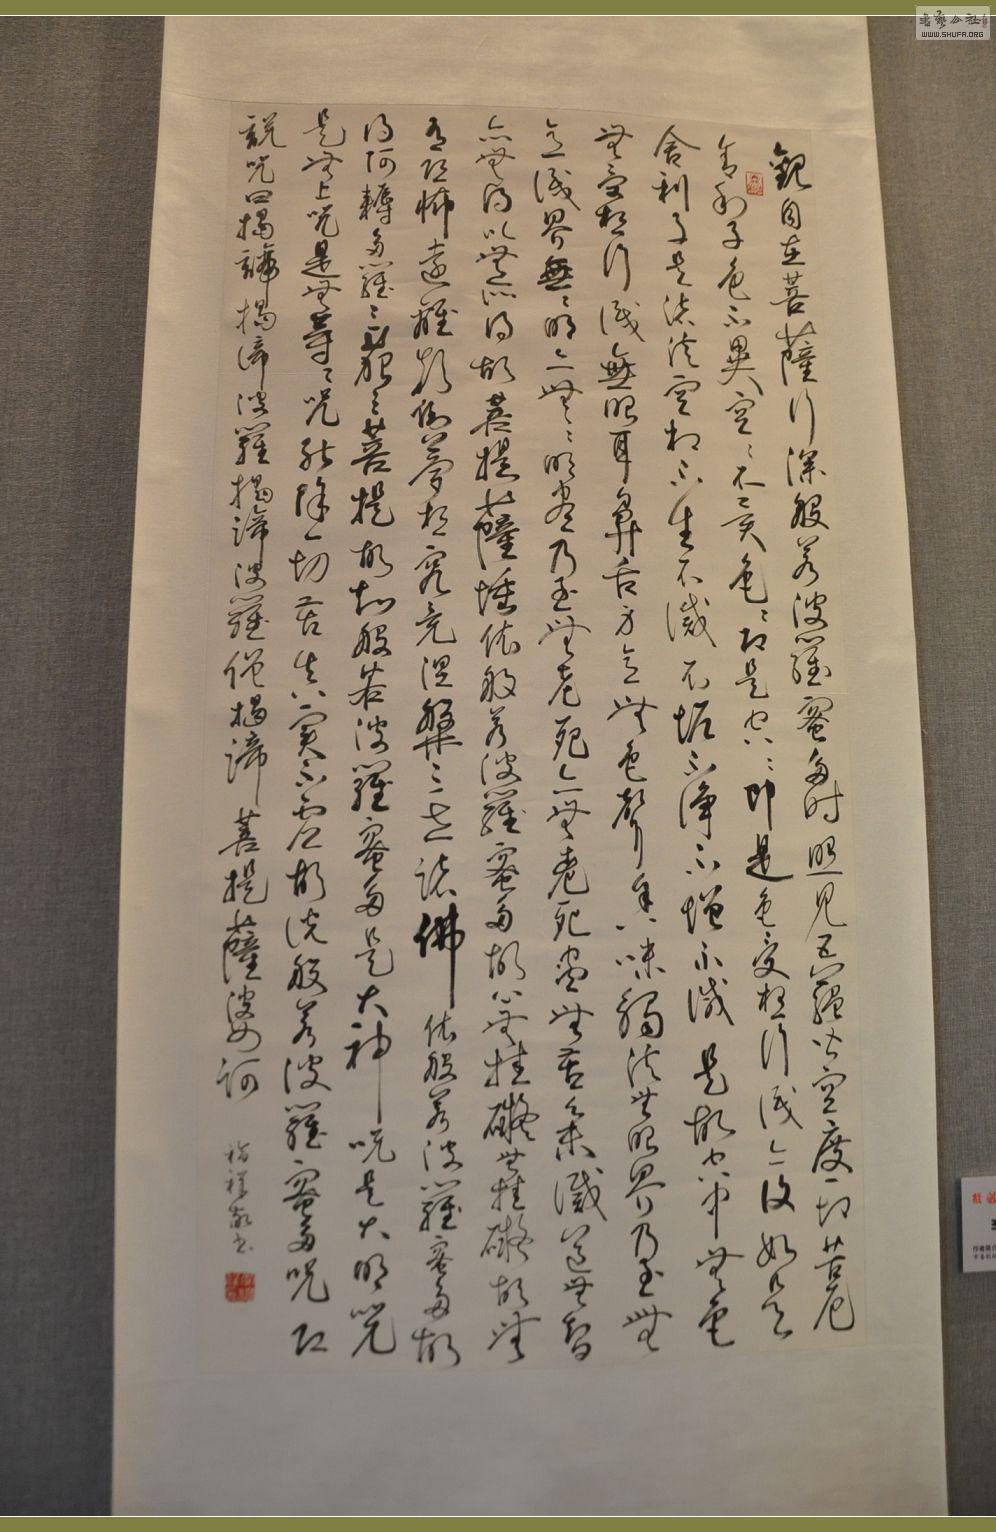 觀自在菩薩行深般若波羅蜜多時照見五蘊皆空度一切苦厄
舍利子色不異空〻不異色〻即是空〻即是色受想行識亦復如是
舍利子是諸法空相不生不滅不垢不淨不增不減是故空中無色
無受想行識無眼耳鼻舌身意無色聲香味觸法無眼界乃至無
意識界無〻明亦無〻明盡乃至無老死亦無老死盡無苦集滅道無智
亦無得以無所得故菩提薩埵依般若波羅蜜多故心無挂礙無挂礙故無
有恐怖遠離顛倒夢想究竟涅槃三世諸佛依般若波羅蜜多故
得阿耨多羅三藐三菩提故知般若波羅蜜多是大神呪是大明呪
是無上呪是無等〻呪能除一切苦真實不虛故說般若波羅蜜多呪即
說呪曰揭諦揭諦波羅揭諦波羅僧揭諦菩提薩婆訶
書
WWW.SHUFA.ORG